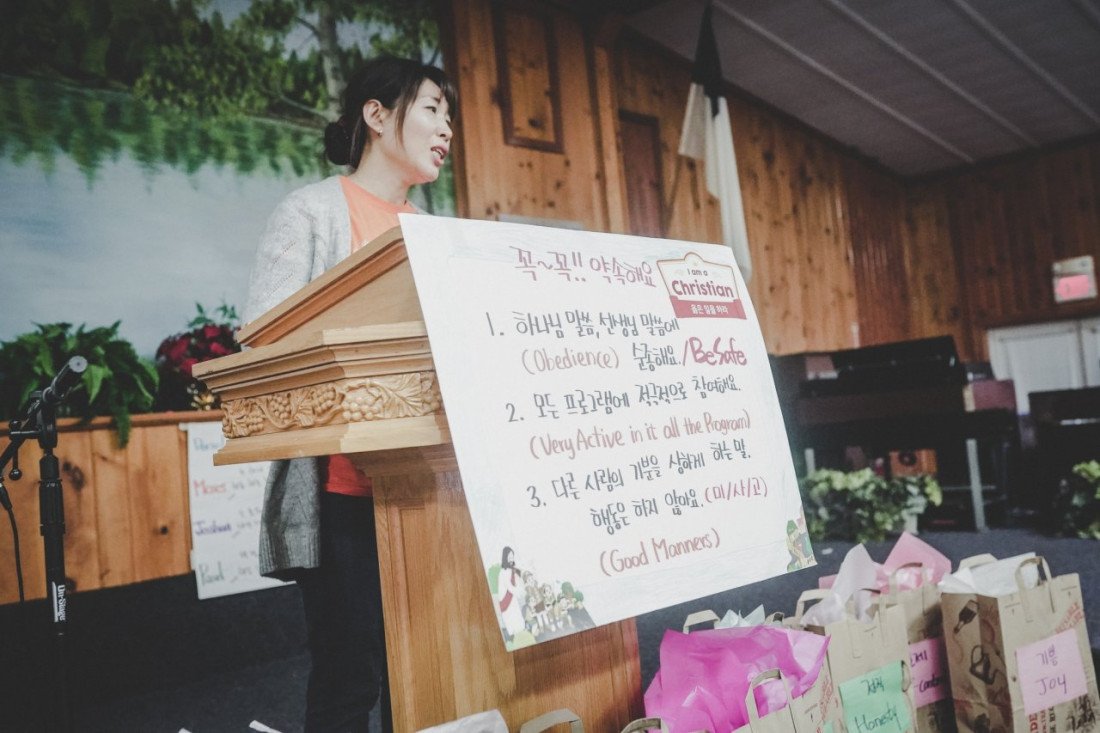 꼭~꼭!! 약속해요
I am a
Christian
옳은 일을 하라
1. 하나님 말씀, 선생님 말씀에
(Obedience) 순종해요./BeSafe
2. 모든 프로그램에 적극적으로 참여해요.
(Very Active in it all the Program)
3. 다른 사람의 기분을 상하게 하는 말,
행동은 하지 않아요. (미/사/고)
(Good Manners)
Moses
Joshua
On-Stage
정직
Honesty
기쁨
Joy